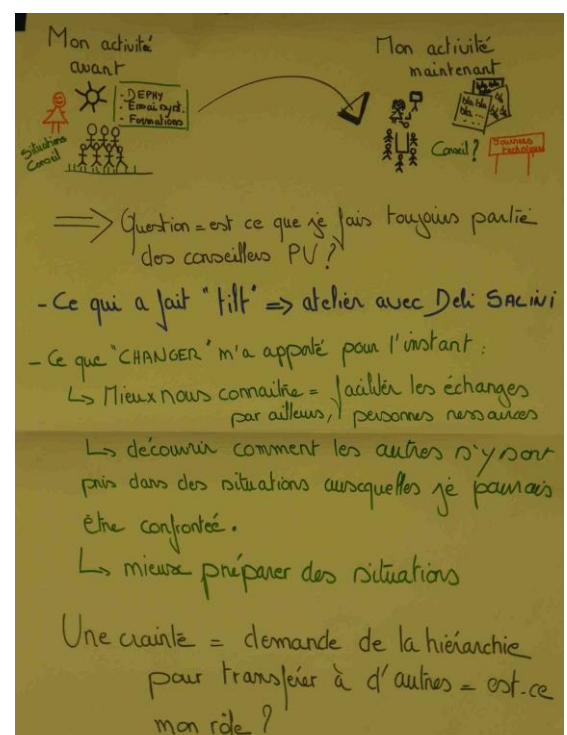 Mon activité
avant
Mon activité
maintenant
- DEPHY
- Essai syst.
- Formations
Situations
Conseil
bla bla
bla bla
bla ...
Conseil ?
Journées
techniques
=> Question = est ce que je fais toujours partie
des conseillers PV ?
- Ce qui a fait "tilt" => atelier avec Deli SALINI
- Ce que "CHANGER" m'a apporté pour l'instant :
↳ Mieux nous connaitre = faciliter les échanges
par ailleurs, personnes ressources
↳ découvrir comment les autres s'y sont
pris dans des situations auxquelles je pourrais
être confrontée.
↳ mieux préparer des situations
Une crainte = demande de la hiérarchie
pour transférer à d'autres = est-ce
mon rôle ?